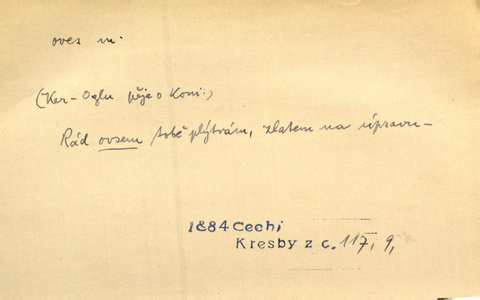 oves m.
(Ker-Oglu pěje o Koni:)
Rád ovsem tobě plýtvám, zlatem na úpravu—
1884 Čechi
Kresby z c. 117, 9,